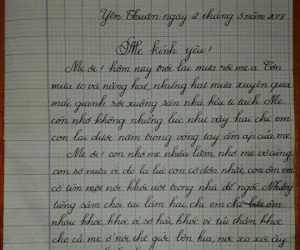 Yên Thuấn ngày 2 tháng 5 năm 2018
Mẹ kính yêu!
Mẹ ơi! hôm nay trời lại mưa rồi mẹ ạ. Cơn
mưa to và nặng hạt, những hạt mưa xuyên qua
mái gianh rơi xuống sàn nhà kêu tí tách. Mẹ
còn nhớ không những lúc như vậy hai chị em
con lại được nằm trong vòng tay ấm áp của mẹ.
Mẹ ơi! con nhớ mẹ nhiều lắm, nhớ mẹ vô cùng
con sợ mưa vì đó là lúc con cô đơn nhất, con ôm em
cố tìm một nơi khỏi ướt trong nhà để ngồi. Những
tiếng sấm chói tai làm hai chị em chỉ biết ôm
nhau khóc, khóc vì sợ hãi, khóc vì tủi thân, khóc
cho cả mẹ ở nơi thế giới bên kia, nơi xa xôi ấy